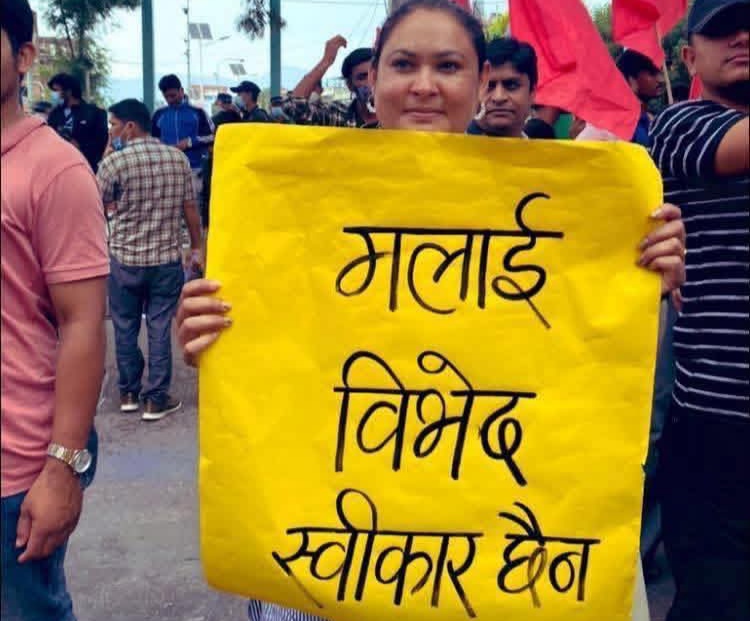 मलाई
विभेद
स्वीकार छैन